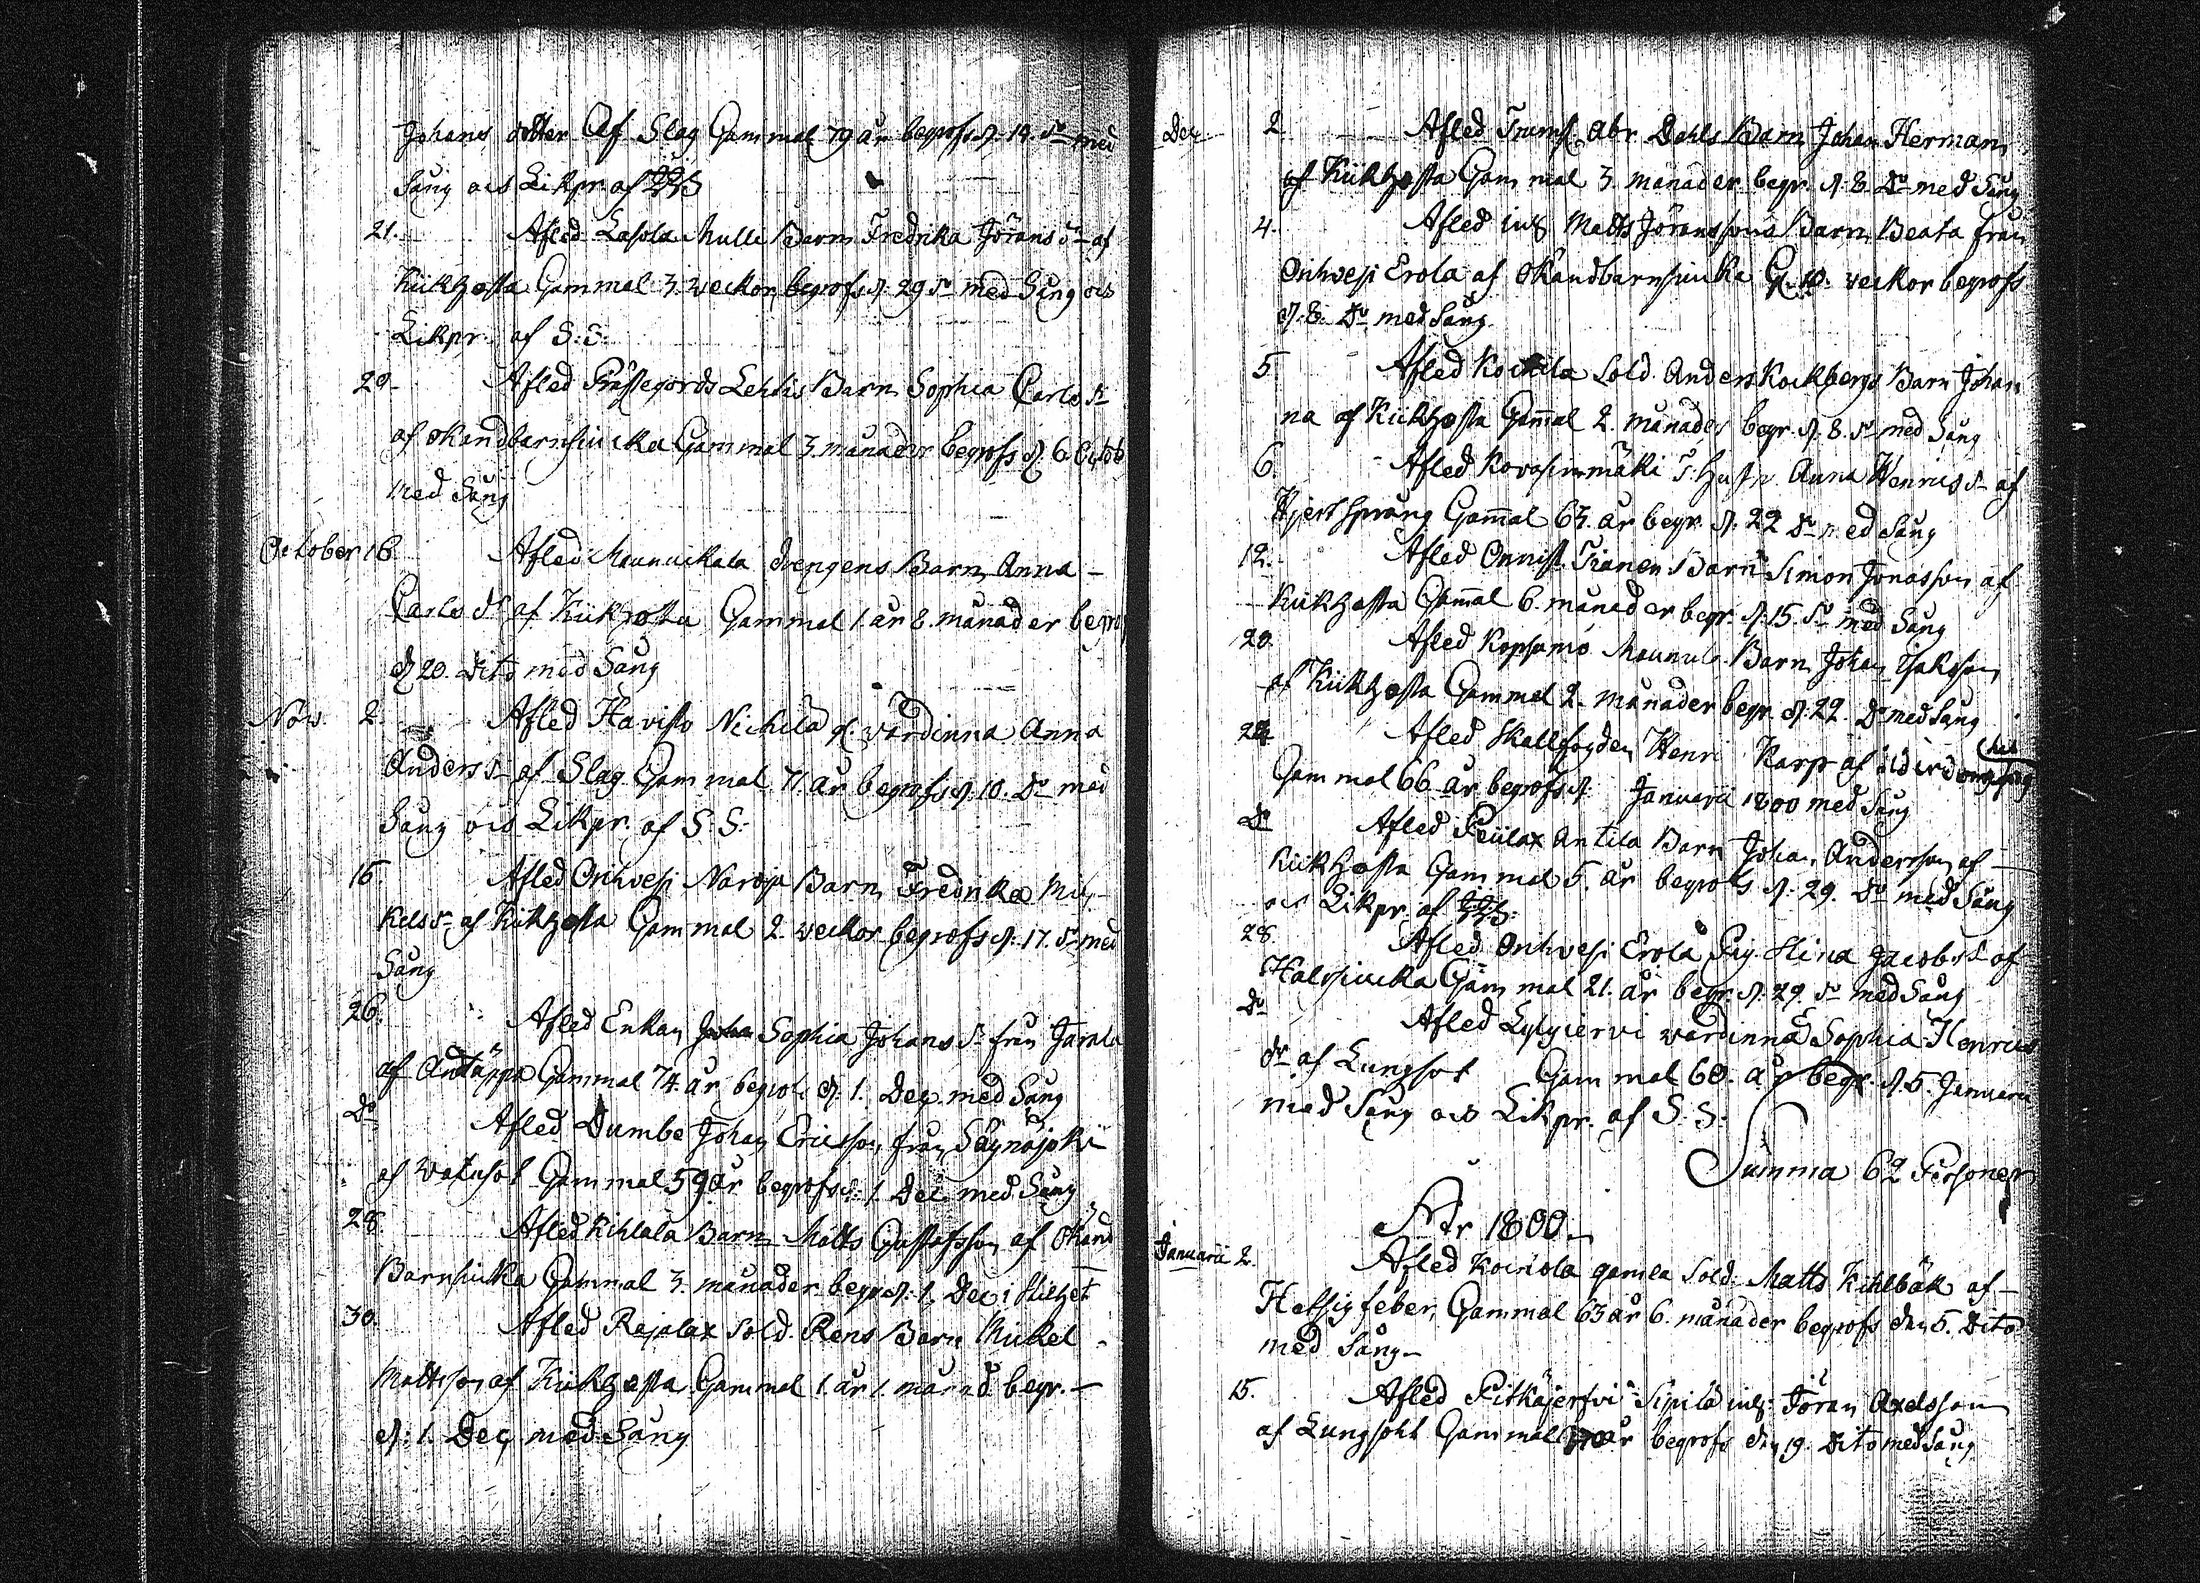 Johans dotter Af Slag Gammal 79 år begrofs d. 14. do med
Sång och Likpr. af S:S
21. Afled Lasola Mulli Barn Fredrika Jörans dr af
Kikhosta Gammal 3. veckor begrofs d. 29 do med Sång och
Likpr. af S:S:
29. Afled Prästegårds Lehtis Barn Sophia Carls dr
af okand barnsiucka Gammal 3. månader begrofs d. 6 Octob
med Sång
October 16. Afled Drengens Barn Anna
Carls dr af Kikhosta Gammal 1. år 8. månader begrof
d 20. Dito med Sång
Nov. 2. Afled Havisto Nickilä gl. värdinna Anna
Anders dr af Slag Gammal 71. år begrofs d. 10. Do med
Sång och Likpr. af S:S:
15 Afled Orihvesi Barn Fredrika Mic
kels dr af Kikhosta Gammal 2. veckor begrofs d. 17. do med
Sång
26. Afled Enkan Sophia Johans dr från Jarala
af Andtäppa Gammal 74. år begrofs d. 1. Dec. med Sång
Do Afled Dumbe Johan Ericsson från Säynäjoki
af Gammal 59 år begrofs d. 1. Dec. med Sång
28 Afled Kihlala Barn Matts Gustafsson af Okänd
Barnsiucka Gammal 3. månader begr. d. 1. Dec. i stilhet
30. Afled Rajalax Sold. Rens Barn Mickel
Mattsson af Kikhosta Gammal 1. år 1. månad begr.
d. 1. Dec. med Sång
Dec 2 Afled Abr. Dahls Barn Johan Herman
af Kikhosta Gammal 3. månader begr. d. 8. Do med Sång
4. Afled inh. Matts Jöranssons Barn Beata från
Orihvesi Erola af okandbarnsiucka G. 10. veckor begrofs
d. 8. Do med Sång
5 Afled Kockila Sold. Anders Kockbergs Barn Johan
na af Kikhosta Gammal 2. månader begr. d. 8. do med Sång
6. Afled Korvasimmäki T. Hustr. Anna Henrics dr af
Hjertsprång Gammal 63. år begr. d. 22 Do med Sång
12. Afled Barn Simon Jonasson af
Kikhosta Gammal 6. månader begr. d. 15. do med Sång
20. Afled Kopsamo Maunuls Barn Johan Isaksson
af Kikhosta Gammal 2. månader begr. d. 22. Do med Sång
24 Afled Skallfogden Henri Karp af
Gammal 66 år begrofs d. Januarii 1800 med Sång
Do Afled Piilax Antila Barn Johan Andersson af
Kikhosta Gammal 5. år begrofs d. 29. do med Sång
och Likpr. af S:S:
28. Afled Orihvesi Erola Pig. Stina Jacobs dr af
Halssiucka Gammal 21. år begr. d. 29. do med Sång
Do Afled Lylyiervi värdinna Sophia Henrics
dr af Lungsot Gammal 60. år begr. d. 5. Januarii
med Sång och Likpr. af S:S:
Summa 62 Personer
År 1800.
Januarii 2. Afled Koiriola gamla Sold. Matts Kihlbäk af
Hetsig feber, Gammal 63 år 6. månader begrofs den 5. Dito
med Sång
15. Afled Pitkäjerfvi Sipilä inh. Jöran Axelsson
af Lungsot Gammal år begrofs den 19. Dito med Sång